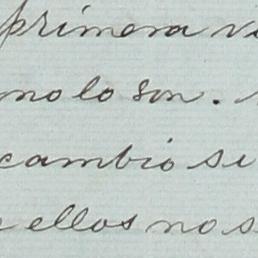 primera vi
no lo son.
cambio si
ellos no s